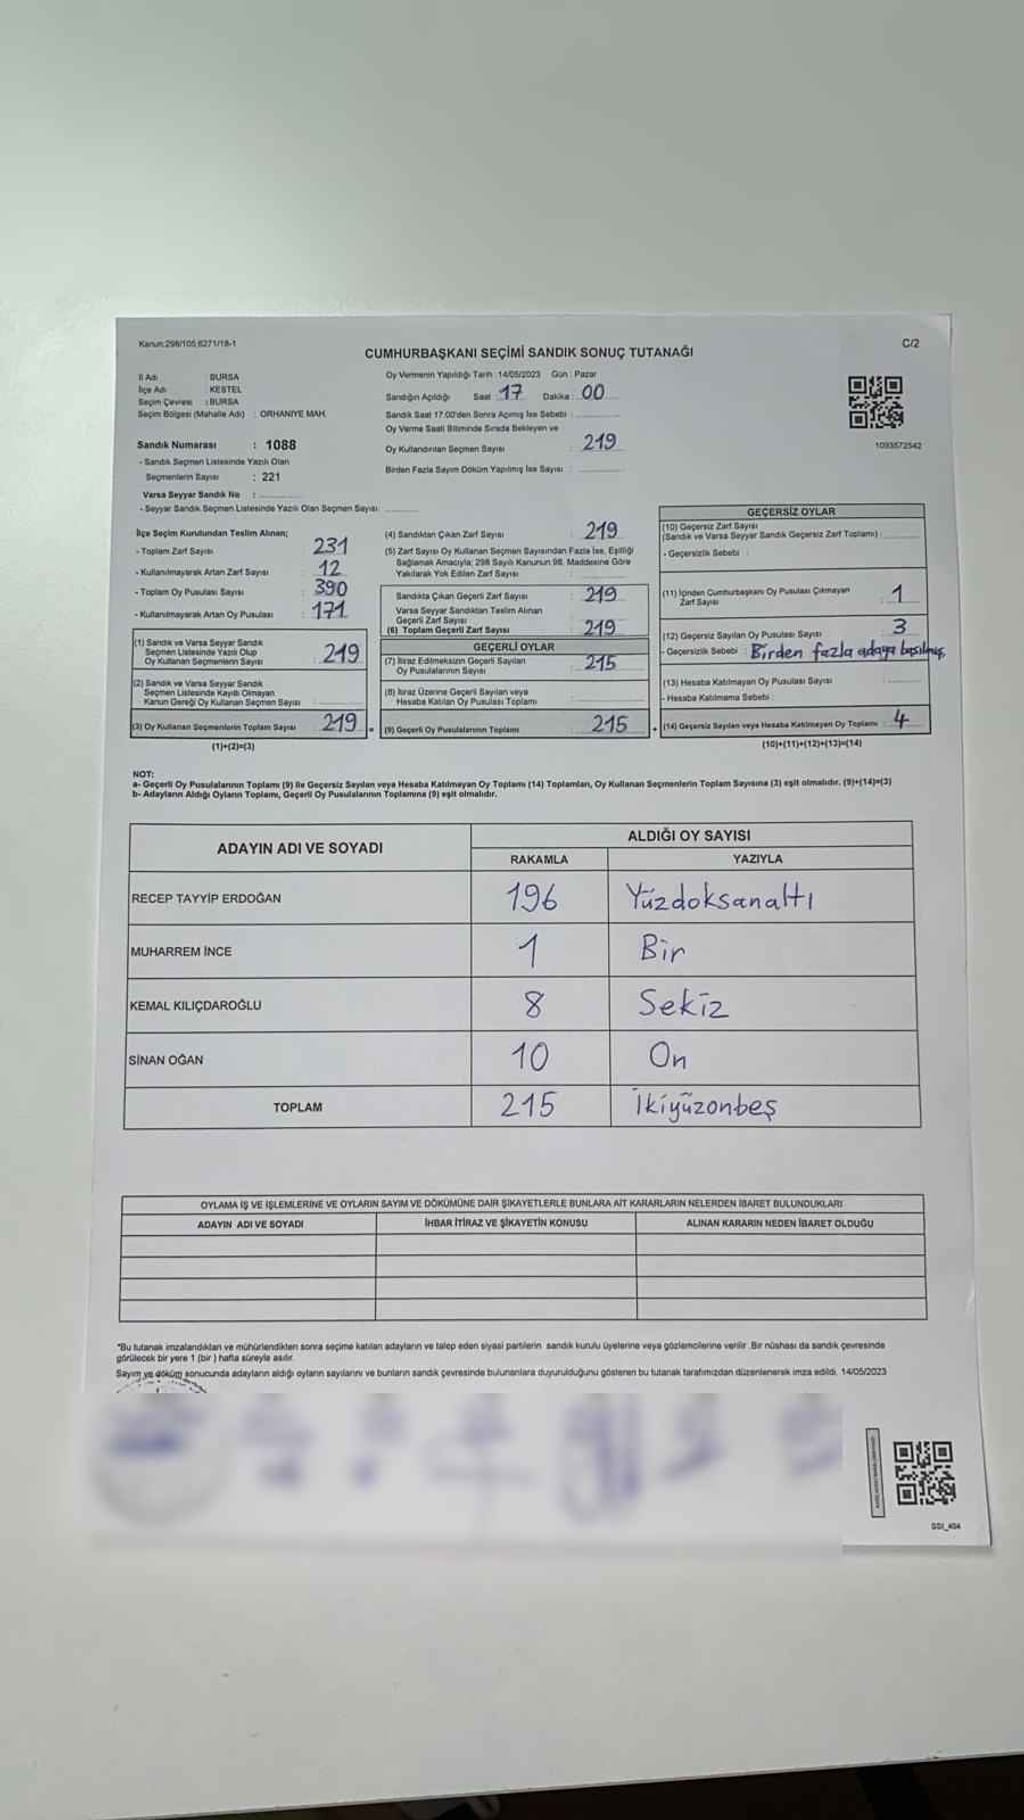 Kanun:298/105,6271/18-1
C/2
CUMHURBAŞKANI SEÇİMİ SANDIK SONUÇ TUTANAĞI
İl Adı : BURSA
İlçe Adı : KESTEL
Seçim Çevresi : BURSA
Seçim Bölgesi (Mahalle Adı) : ORHANİYE MAH.
Sandık Numarası : 1088
- Sandık Seçmen Listesinde Yazılı Olan
Seçmenlerin Sayısı : 221
Varsa Seyyar Sandık No :
- Seyyar Sandık Seçmen Listesinde Yazılı Olan Seçmen Sayısı:
Oy Vermenin Yapıldığı Tarih : 14/05/2023 Gün : Pazar
Sandığın Açıldığı Saat : 17 Dakika : 00
Sandık Saat 17:00'den Sonra Açılmış İse Sebebi :
Oy Verme Saati Bitiminde Sırada Bekleyen ve
Oy Kullandırılan Seçmen Sayısı : 219
Birden Fazla Sayım Döküm Yapılmış İse Sayısı :
1093572542
İlçe Seçim Kurulundan Teslim Alınan;
- Toplam Zarf Sayısı : 231
- Kullanılmayarak Artan Zarf Sayısı : 12
- Toplam Oy Pusulası Sayısı : 390
- Kullanılmayarak Artan Oy Pusulası : 171
(1) Sandık ve Varsa Seyyar Sandık
Seçmen Listesinde Yazılı Olup
Oy Kullanan Seçmenlerin Sayısı : 219
(2) Sandık ve Varsa Seyyar Sandık
Seçmen Listesinde Kayıtlı Olmayan
Kanun Gereği Oy Kullanan Seçmen Sayısı
(3) Oy Kullanan Seçmenlerin Toplam Sayısı : 219
(1)+(2)=(3)
(4) Sandıktan Çıkan Zarf Sayısı : 219
(5) Zarf Sayısı Oy Kullanan Seçmen Sayısından Fazla İse, Eşitliği
Sağlamak Amacıyla; 298 Sayılı Kanunun 98. Maddesine Göre
Yakılarak Yok Edilen Zarf Sayısı :
Sandıkta Çıkan Geçerli Zarf Sayısı : 219
Varsa Seyyar Sandıktan Teslim Alınan
Geçerli Zarf Sayısı
(6) Toplam Geçerli Zarf Sayısı : 219
GEÇERLİ OYLAR
(7) İtiraz Edilmeksizin Geçerli Sayılan
Oy Pusulalarının Sayısı : 215
(8) İtiraz Üzerine Geçerli Sayılan veya
Hesaba Katılan Oy Pusulası Toplamı
(9) Geçerli Oy Pusulalarının Toplamı : 215
GEÇERSİZ OYLAR
(10) Geçersiz Zarf Sayısı
(Sandık ve Varsa Seyyar Sandık Geçersiz Zarf Toplamı) :
- Geçersizlik Sebebi :
(11) İçinden Cumhurbaşkanı Oy Pusulası Çıkmayan
Zarf Sayısı : 1
(12) Geçersiz Sayılan Oy Pusulası Sayısı : 3
- Geçersizlik Sebebi : Birden fazla adaya basılmış
(13) Hesaba Katılmayan Oy Pusulası Sayısı
- Hesaba Katılmama Sebebi :
(14) Geçersiz Sayılan veya Hesaba Katılmayan Oy Toplamı : 4
(10)+(11)+(12)+(13)=(14)
NOT:
a- Geçerli Oy Pusulalarının Toplamı (9) ile Geçersiz Sayılan veya Hesaba Katılmayan Oy Toplamı (14) Toplamları, Oy Kullanan Seçmenlerin Toplam Sayısına (3) eşit olmalıdır. (9)+(14)=(3)
b- Adayların Aldığı Oyların Toplamı, Geçerli Oy Pusulalarının Toplamına (9) eşit olmalıdır.
ADAYIN ADI VE SOYADI
ALDIĞI OY SAYISI
RAKAMLA YAZIYLA
RECEP TAYYİP ERDOĞAN 196 Yüzdoksanaltı
MUHARREM İNCE 1 Bir
KEMAL KILIÇDAROĞLU 8 Sekiz
SİNAN OĞAN 10 On
TOPLAM 215 İkiyüzonbeş
OYLAMA İŞ VE İŞLEMLERİNE VE OYLARIN SAYIM VE DÖKÜMÜNE DAİR ŞİKAYETLERLE BUNLARA AİT KARARLARIN NELERDEN İBARET BULUNDUKLARI
ADAYIN ADI VE SOYADI İHBAR İTİRAZ VE ŞİKAYETİN KONUSU ALINAN KARARIN NEDEN İBARET OLDUĞU
*Bu tutanak imzalandıktan ve mühürlendikten sonra seçime katılan adayların ve talep eden siyasi partilerin sandık kurulu üyelerine veya gözlemcilerine verilir. Bir nüshası da sandık çevresinde
görülecek bir yere 1 (bir) hafta süreyle asılır.
Sayım ve döküm sonucunda adayların aldığı oyların sayılarını ve bunların sandık çevresinde bulunanlara duyurulduğunu gösteren bu tutanak tarafımızdan düzenlenerek imza edildi. 14/05/2023